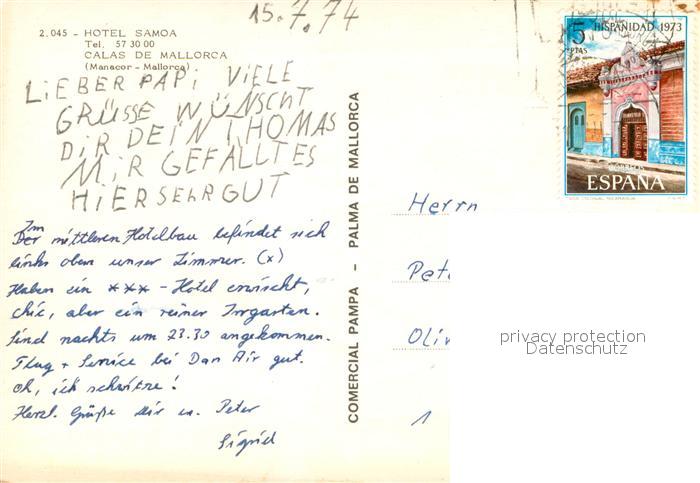 15.7.74
2.045 - HOTEL SAMOA
Tel. 57 30 00
CALAS DE MALLORCA
(Manacor - Mallorca)
LIEBER PAPI VIELE
GRÜSSE WÜNSCHT
DIR DEIN THOMAS
MIR GEFÄLLT ES
HIER SEHR GUT
Im
Der mittleren Hotelbau befindet sich
links oben unser Zimmer. (x)
Haben ein *** - Hotel erwischt,
chic, aber ein reiner Irrgarten.
Sind nachts um 23.30 angekommen.
Flug + Service bei Dan Air gut.
Oh, ich schwitze!
Herzl. Grüße Dir u. Peter
Sigrid
COMERCIAL PAMPA - PALMA DE MALLORCA
HISPANIDAD 1973
5
PTAS
CORREOS
ESPAÑA
Herrn
Pet
Oliv
1
privacy protection
Datenschutz